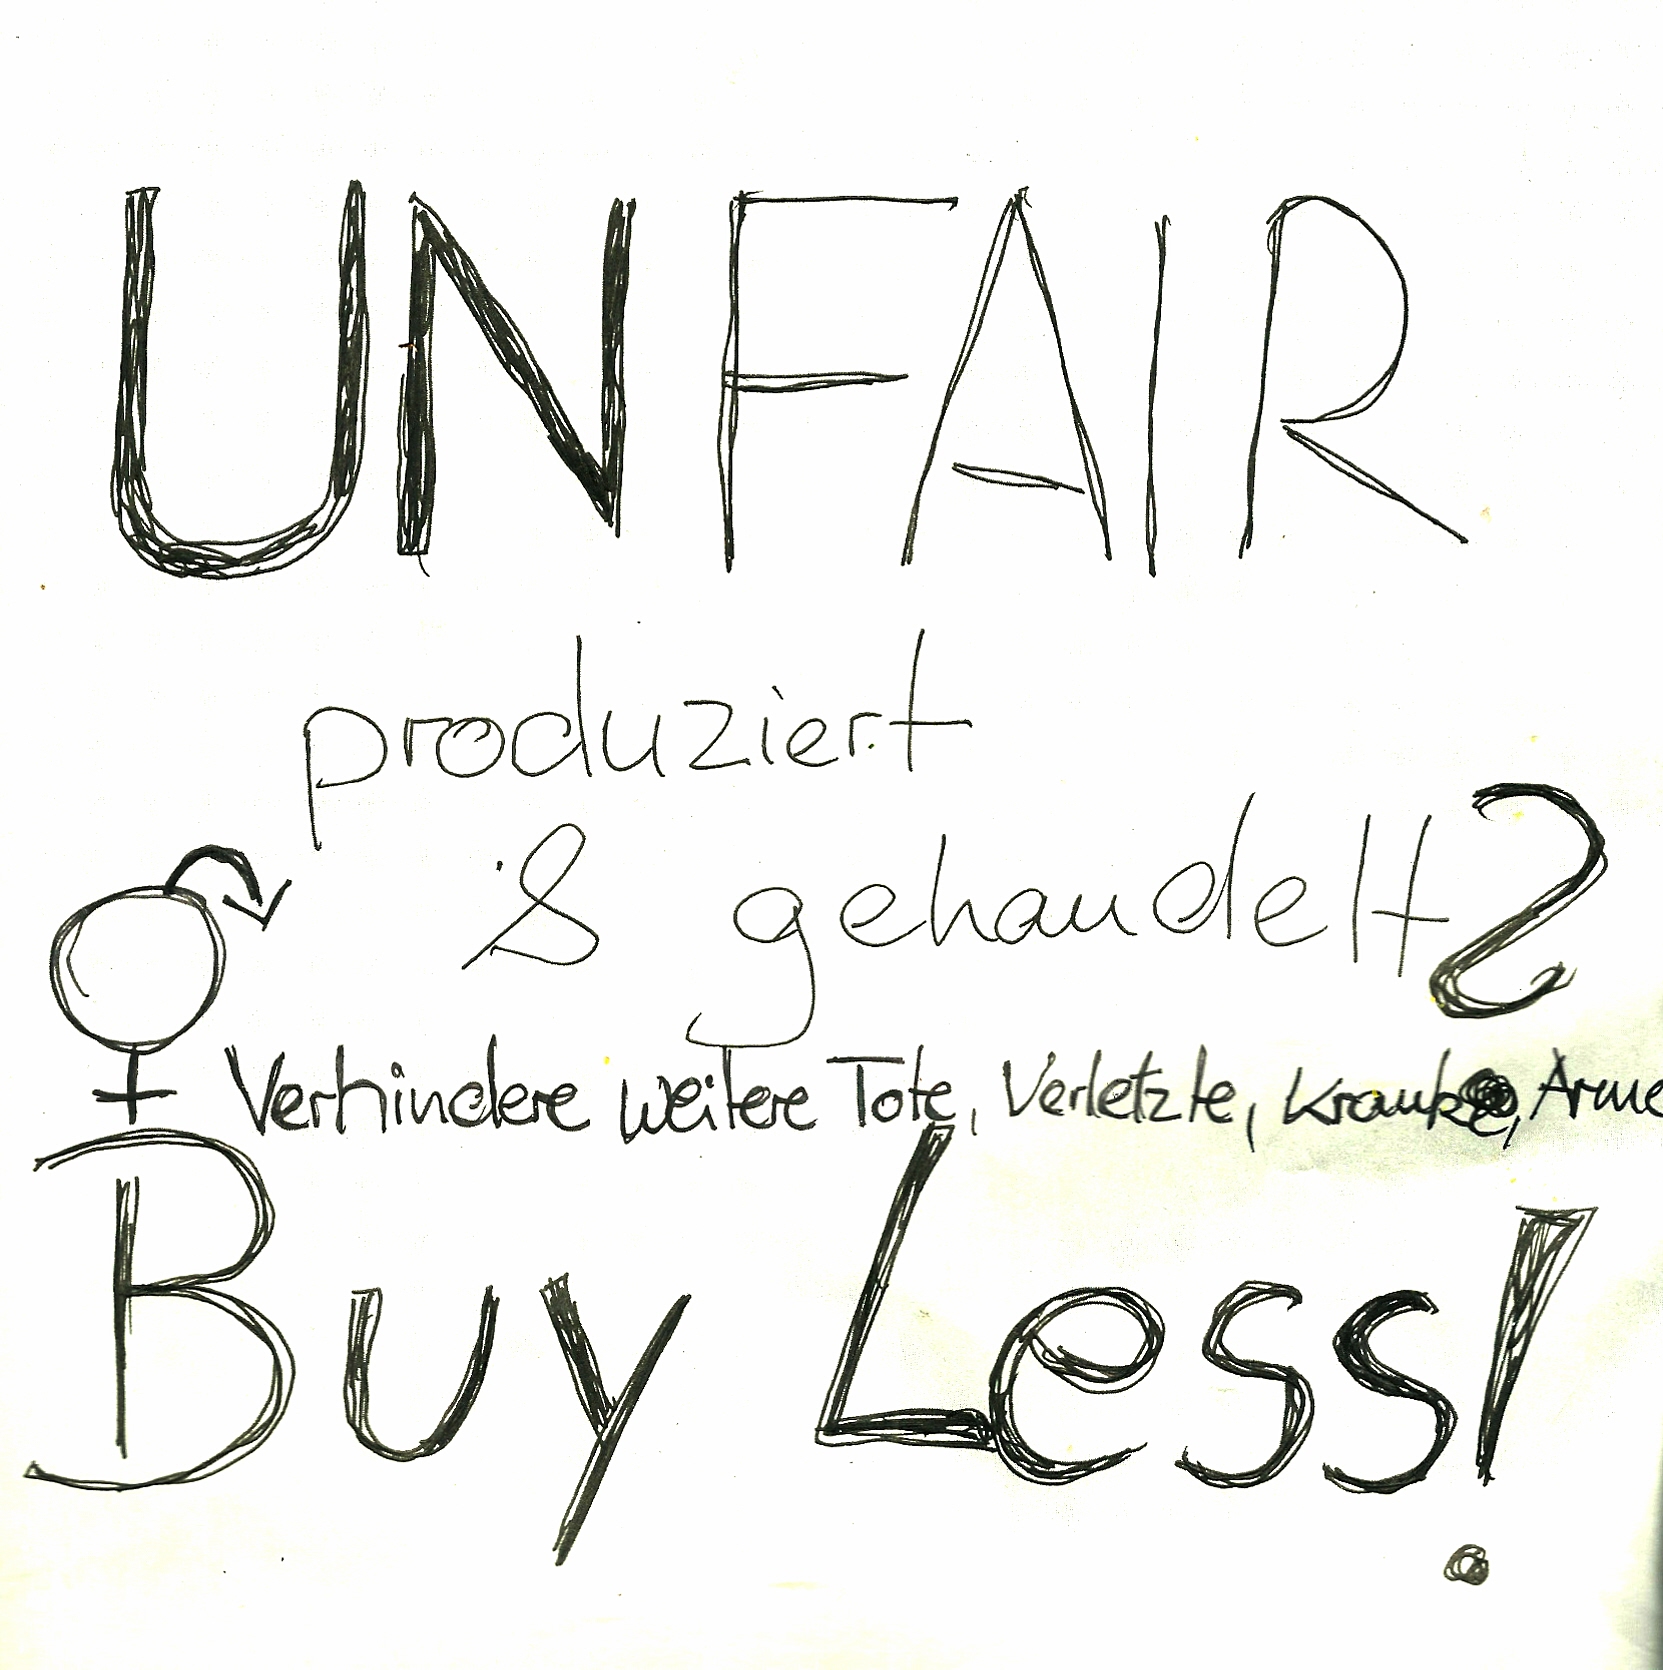 UNFAIR
produziert
& gehandelt?
Verhindere weitere Tote, Verletzte, Kranke, Arme
Buy Less!